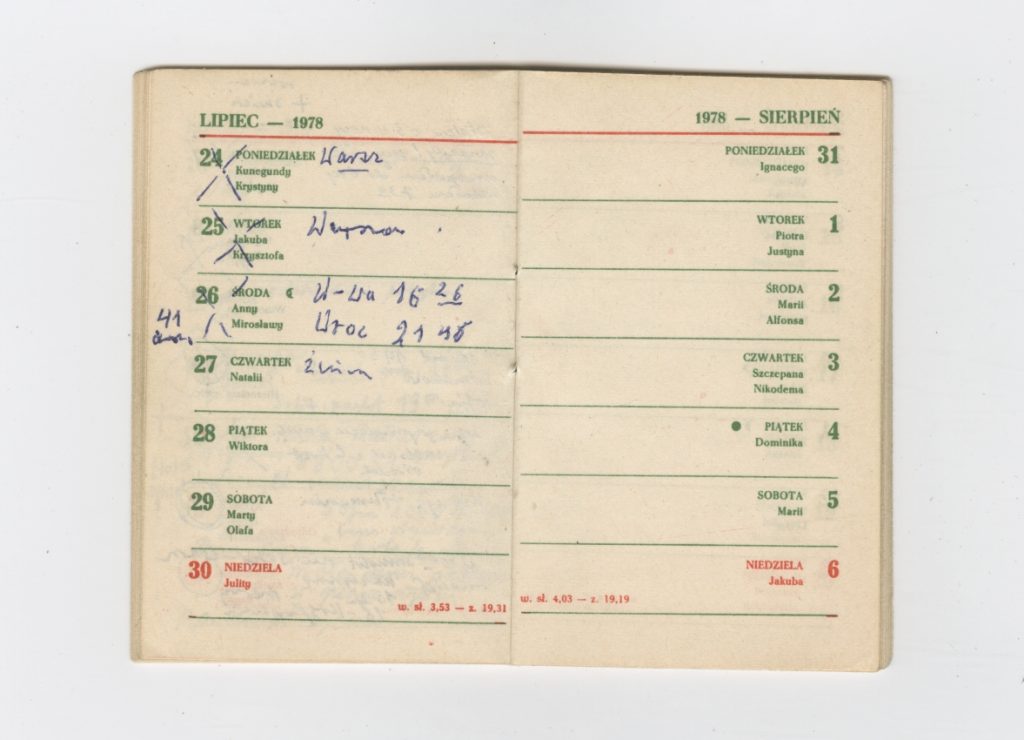 LIPIEC — 1978
24 PONIEDZIAŁEK Warsz
Kunegundy
Krystyny
25 WTOREK
Jakuba
Krzysztofa
26 ŚRODA W-wa 16 26
Anny
Mirosławy Wroc 21 45
41
27 CZWARTEK
Natalii
28 PIĄTEK
Wiktora
29 SOBOTA
Marty
Olafa
30 NIEDZIELA
Julity
w. sł. 3,53 — z. 19,31
1978 — SIERPIEŃ
PONIEDZIAŁEK 31
Ignacego
WTOREK 1
Piotra
Justyna
ŚRODA 2
Marii
Alfonsa
CZWARTEK 3
Szczepana
Nikodema
PIĄTEK 4
Dominika
SOBOTA 5
Marii
NIEDZIELA 6
Jakuba
w. sł. 4,03 — z. 19,19